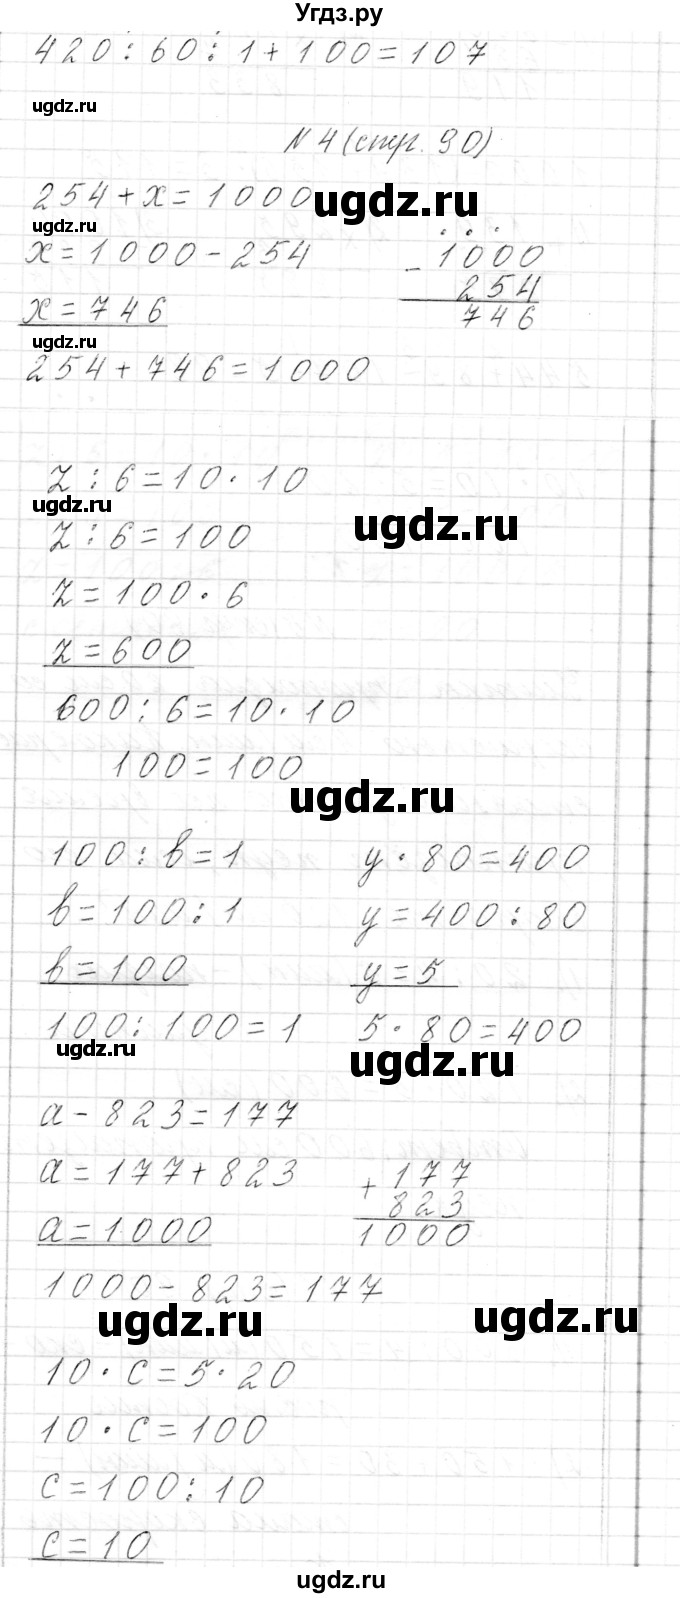 Угдз.ру
420:60:1+100=107
ugdz.ru
N 4 (стр. 90)
254+x=1000
ugdz.ru
ugdz.ru
x=1000-254
- 1000
254
746
x=746
ugdz.ru
254+746=1000
z:6=10·10
ugdz.ru
z:6=100
ugdz.ru
z=100·6
z=600
600:6=10·10
100=100
ugdz.ru
100:b=1
b=100:1
b=100
100:100=1
ugdz.ru
y·80=400
y=400:80
y=5
5·80=400
ugdz.ru
a-823=177
a=177+823
+ 177
823
1000
a=1000
1000-823=177
ugdz.ru
ugdz.ru
10·c=5·20
10·c=100
c=100:10
c=10
ugdz.ru